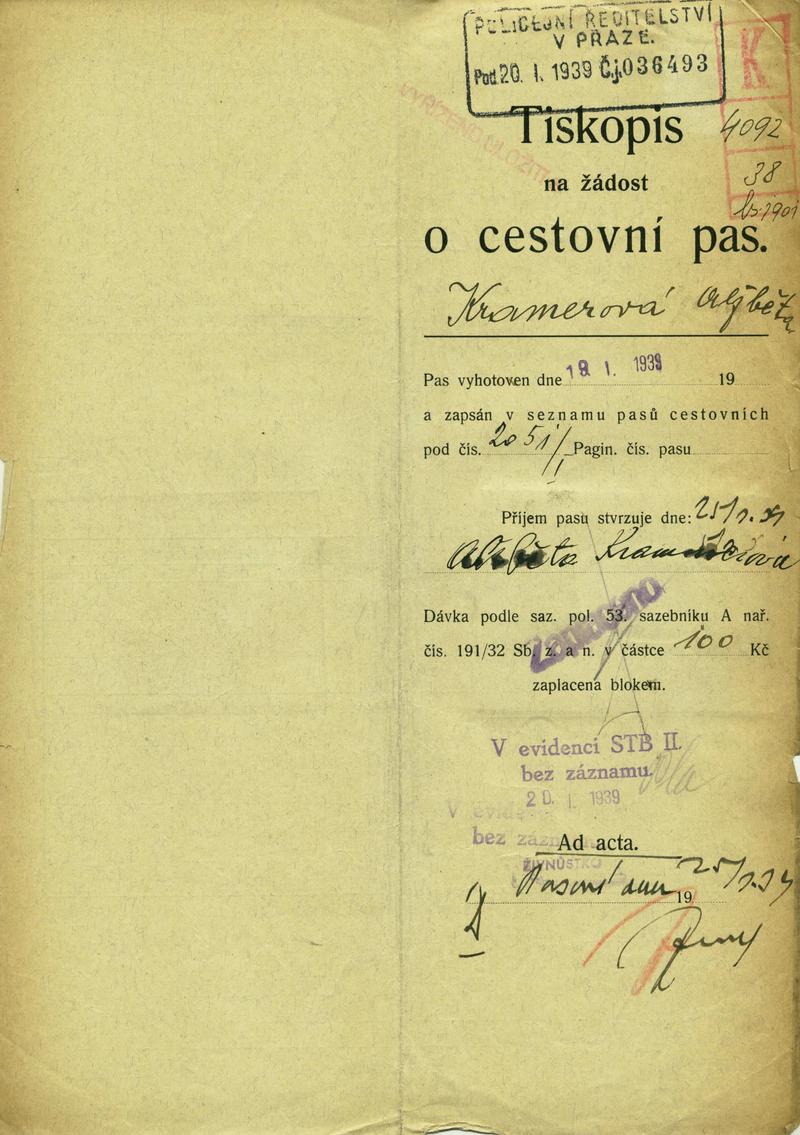 POLICEJNÍ ŘEDITELSTVÍ
V PRAZE.
Pod. 20. I. 1939 Č.j. 036493
K
VYŘÍZENO ULOŽIT
Tiskopis
4092
na žádost
38
o cestovní pas.
Kramerová Alžběta
Pas vyhotoven dne 19. I. 1939 19
a zapsán v seznamu pasů cestovních
pod čís. 2051/I Pagin. čís. pasu
Příjem pasu stvrzuje dne: 25/1. 39
Alžběta Kramerová
Dávka podle saz. pol. 53. sazebníku A nař.
Zaplaceno
čís. 191/32 Sb. z. a n. v částce 100 Kč
zaplacena blokem.
V evidenci STB II.
bez záznamu.
20. I. 1939
V evid
bez zázn
Ad acta.
ŽIVNOSTKO
dne 25/1.39
19